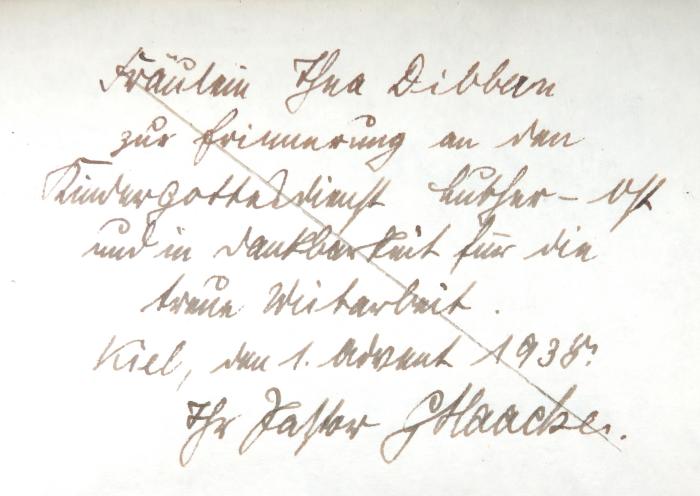 Fräulein Thea Dibbern
zur Erinnerung an den
Kindergottesdienst Luther-Ost
und in Dankbarkeit für die
treue Mitarbeit.
Kiel, den 1. Advent 1938.
Ihr Pastor GHaacke.